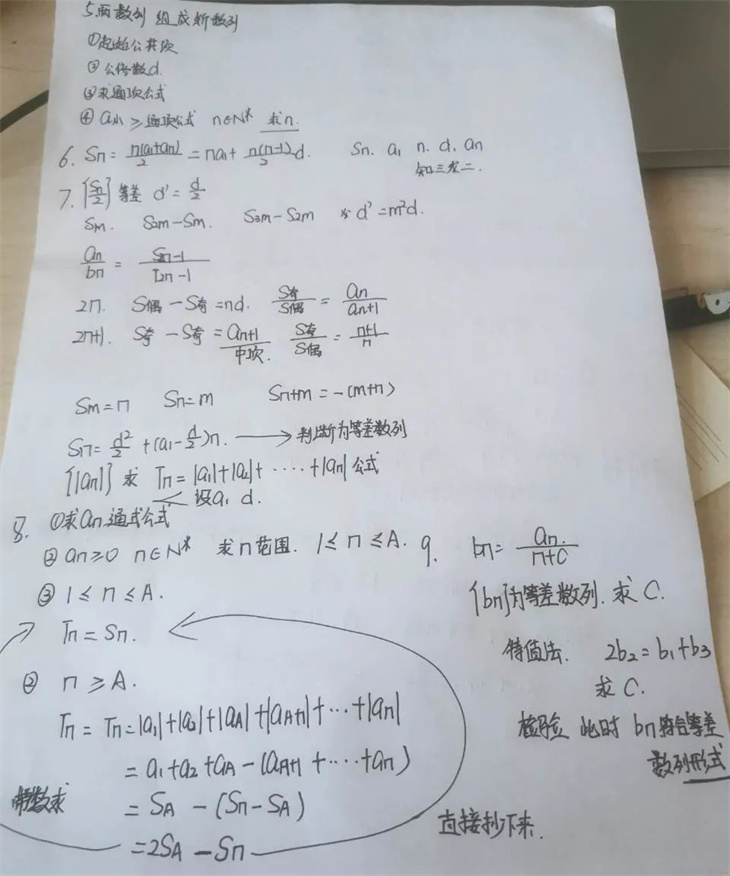 5.两数列 组成新数列
①起始公共项
②公倍数d.
③求通项公式
④ an ≥ 通项公式 n∈N* 求n.
6. Sn = n(a1+an)/2 = na1 + n(n-1)/2 d. Sn. a1 n. d. an
知三求二.
7. {Sn/2} 等差 d' = d/2
Sm. S2m-Sm. S3m-S2m d' = m²d.
an/bn = S2n-1/T2n-1
2n. S偶 - S奇 = nd. S奇/S偶 = an/an+1
2n+1. S奇 - S奇 = an+1/中项. S奇/S偶 = n+1/n
Sm = n Sn = m Sn+m = -(m+n)
Sn = d²/2 + (a1 - d/2)n. → 判断为等差数列
{|an|} 求 Tn = |a1|+|a2|+ ····· +|an| 公式
设a1 d.
8. ①求an通式公式
② an≥0 n∈N* 求n范围. 1≤n≤A.
③ 1≤n≤A.
Tn = Sn.
② n≥A.
Tn = Tn = |a1|+|a2|+|aA|+|aA+1|+···+|an|
= a1+a2+aA-(aA+1+···+an)
带数求 = SA - (Sn-SA)
= 2SA - Sn
直接抄下来.
9. bn = an./n+C
{bn}为等差数列. 求C.
特值法. 2b2 = b1+b3
求C.
检验 此时 bn符合等差
数列形式